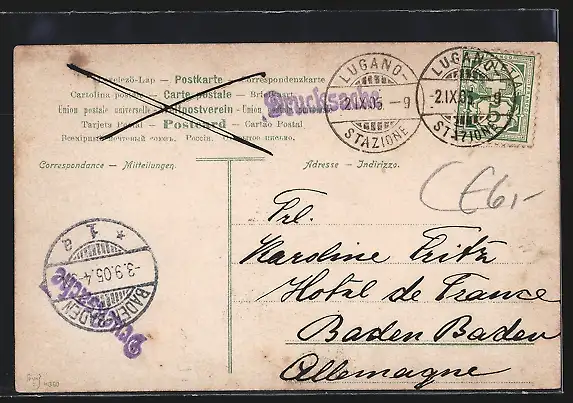 Levelező-Lap — Postkarte — Correspondenzkarte
Cartolina postale — Carte postale — Briefkaart
Union postale universelle — Weltpostverein — Union
Tarjeta Postal — Postcard — Carta Postal
Всемірный почтовый союзъ. Россія.
Drucksache
LUGANO-
2.IX.05.-9
STAZIONE
LUGANO-
-2.IX.05.-9
STAZIONE
Correspondance — Mitteilungen.
Adresse — Indirizzo.
CH 6,-
Frl.
Karoline Fritz
Hotel de France
Baden Baden
Allemagne
* 1 *
a
-3.9.05.4-
BADEN-BADEN
Drucksache